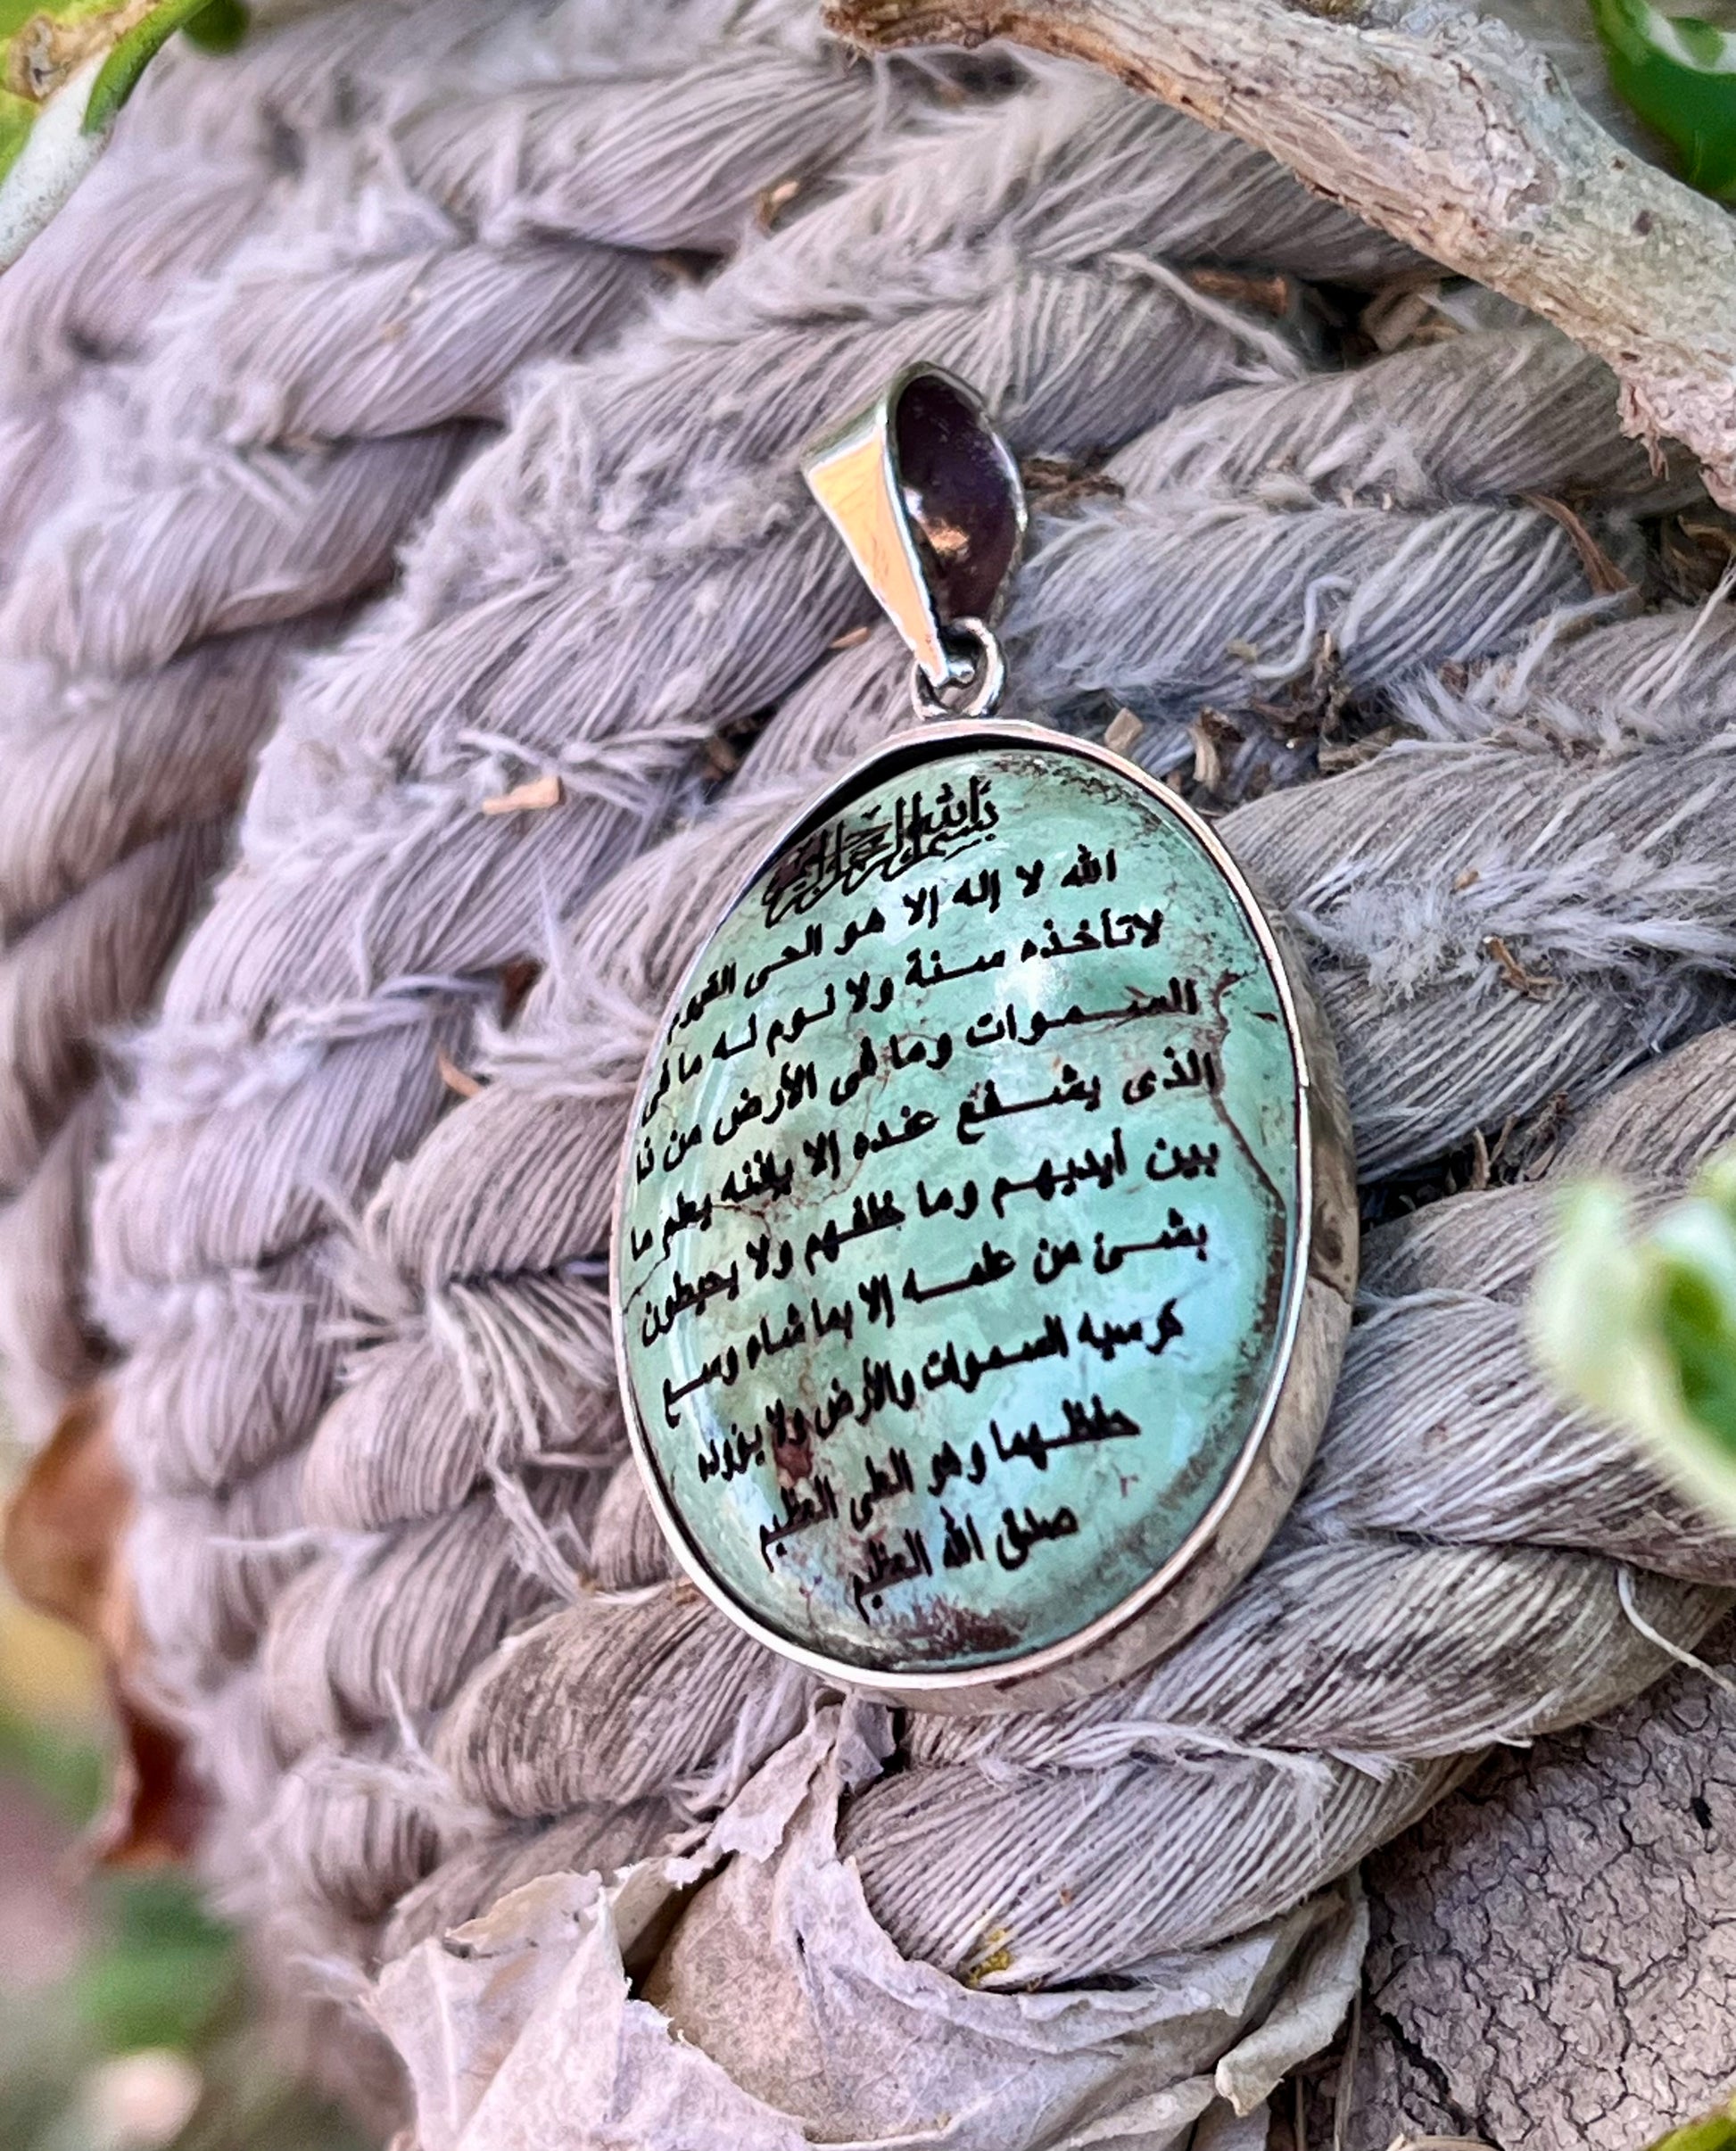 بسم الله الرحمن الرحيم
الله لا إله إلا هو الحى القيوم
لاتأخذه سنة ولا نوم له ما فى
السموات وما فى الأرض من ذا
الذى يشفع عنده إلا بإذنه يعلم ما
بين أيديهم وما خلفهم ولا يحيطون
بشئ من علمه إلا بما شاء وسع
كرسيه السموات والأرض ولا يؤوده
حفظهما وهو العلى العظيم
صدق الله العظيم